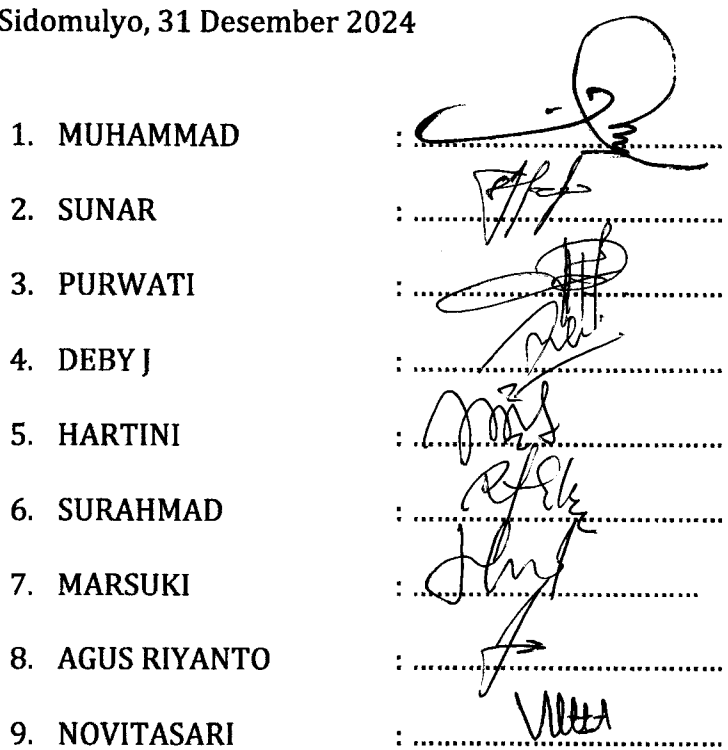 Sidomulyo, 31 Desember 2024
1. MUHAMMAD : ........................................
2. SUNAR : ........................................
3. PURWATI : ........................................
4. DEBY J : ........................................
5. HARTINI : ........................................
6. SURAHMAD : ........................................
7. MARSUKI : ........................................
8. AGUS RIYANTO : ........................................
9. NOVITASARI : ........................................